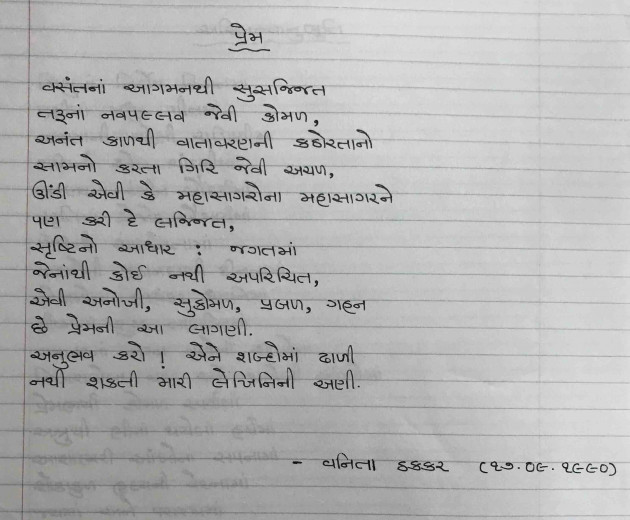 પ્રેમ
વસંતનાં આગમનથી સુસજ્જિત
તરૂનાં નવપલ્લવ જેવી કોમળ,
અનંત કાળથી વાતાવરણની કઠોરતાનો
સામનો કરતા ગિરિ જેવી અચળ,
ઊંડી એવી કે મહાસાગરોના મહાસાગરને
પણ કરી દે લજ્જિત,
સૃષ્ટિનો આધાર : જગતમાં
જેનાંથી કોઈ નથી અપરિચિત,
એવી અનોખી, સુકોમળ, પ્રબળ, ગહન
છે પ્રેમની આ લાગણી.
અનુભવ કરો ! એને શબ્દોમાં ઢાળી
નથી શકતી મારી લેખિનિની અણી.
- વનિતા ઠક્કર (૨૭.૦૯.૧૯૯૦)